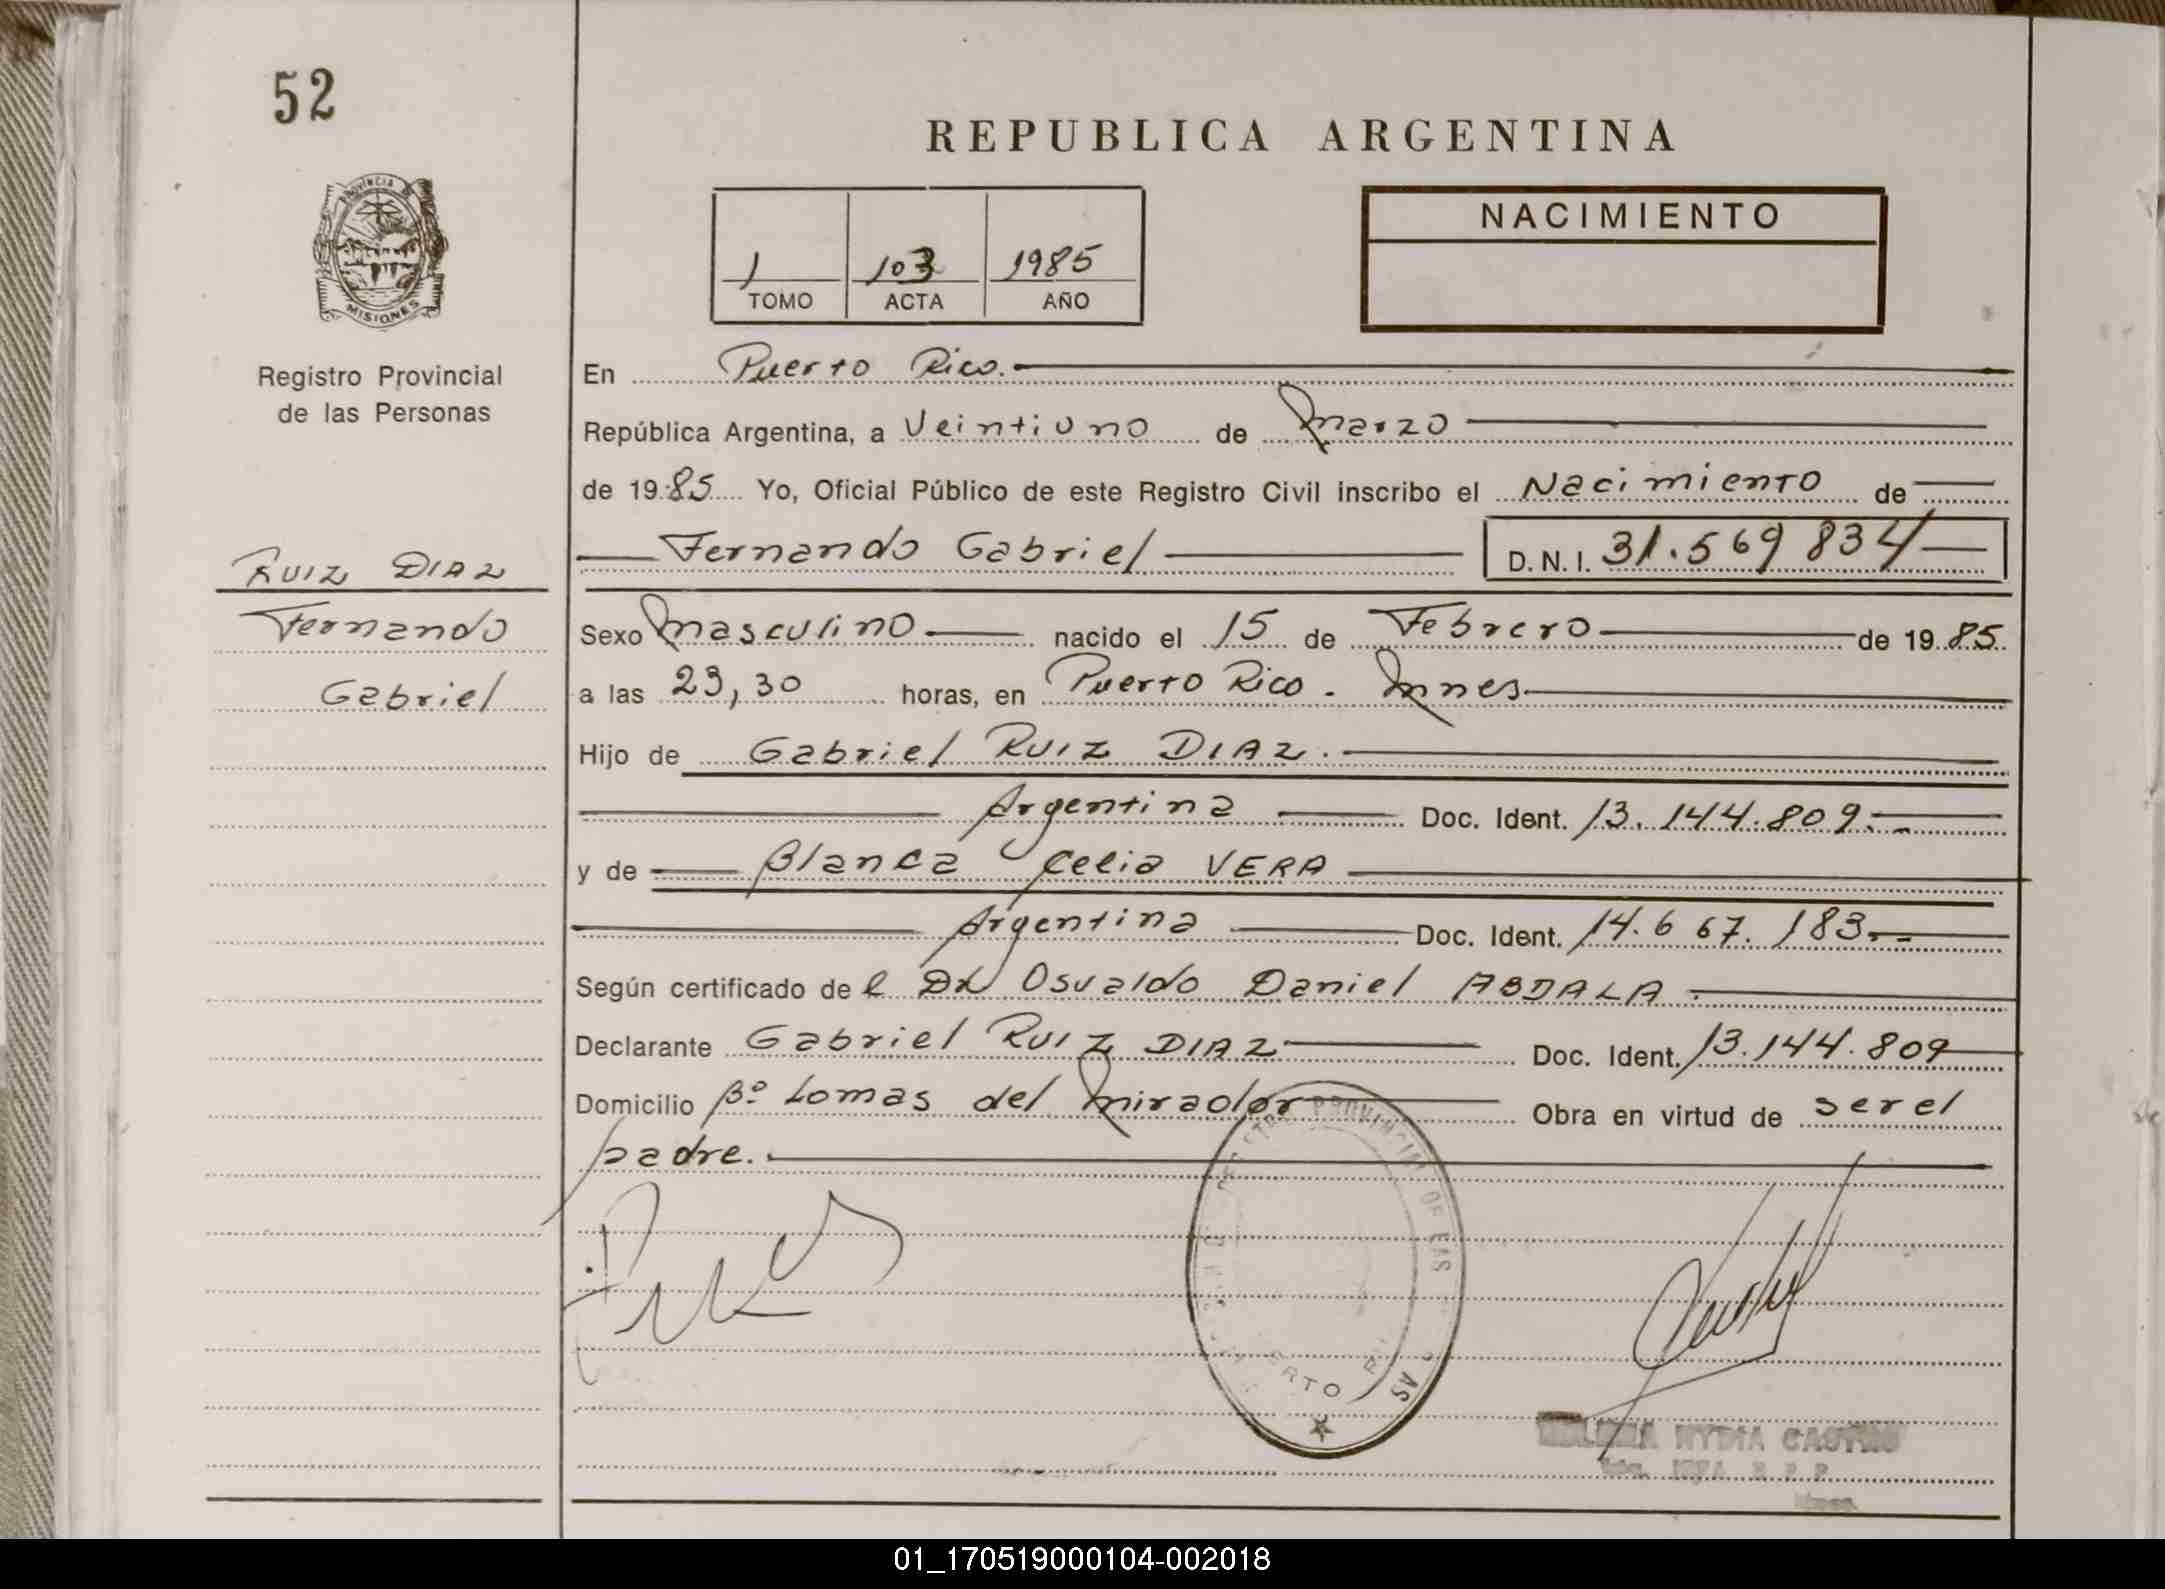 52
REPUBLICA ARGENTINA
PROVINCIA DE
MISIONES
Registro Provincial
de las Personas
1 103 1985
TOMO ACTA AÑO
NACIMIENTO
En Puerto Rico.
República Argentina, a Veintiuno de Marzo
de 1985 Yo, Oficial Público de este Registro Civil inscribo el Nacimiento de
Fernando Gabriel D.N.I. 31.569 834
RUIZ DIAZ
Fernando
Gabriel
Sexo Masculino nacido el 15 de Febrero de 1985.
a las 23,30 horas, en Puerto Rico. Mnes
Hijo de Gabriel RUIZ DIAZ.
Argentina Doc. Ident. 13.144.809.-
y de Blanca Celia VERA
Argentina Doc. Ident. 14.667.183.-
Según certificado del Dr Osvaldo Daniel ABDALA.
Declarante Gabriel RUIZ DIAZ Doc. Ident. 13.144.809
Domicilio Bº Lomas del Mirador Obra en virtud de ser el
padre.
PROVINCIAL DE LAS
NYDIA CASTRO
01_170519000104-002018